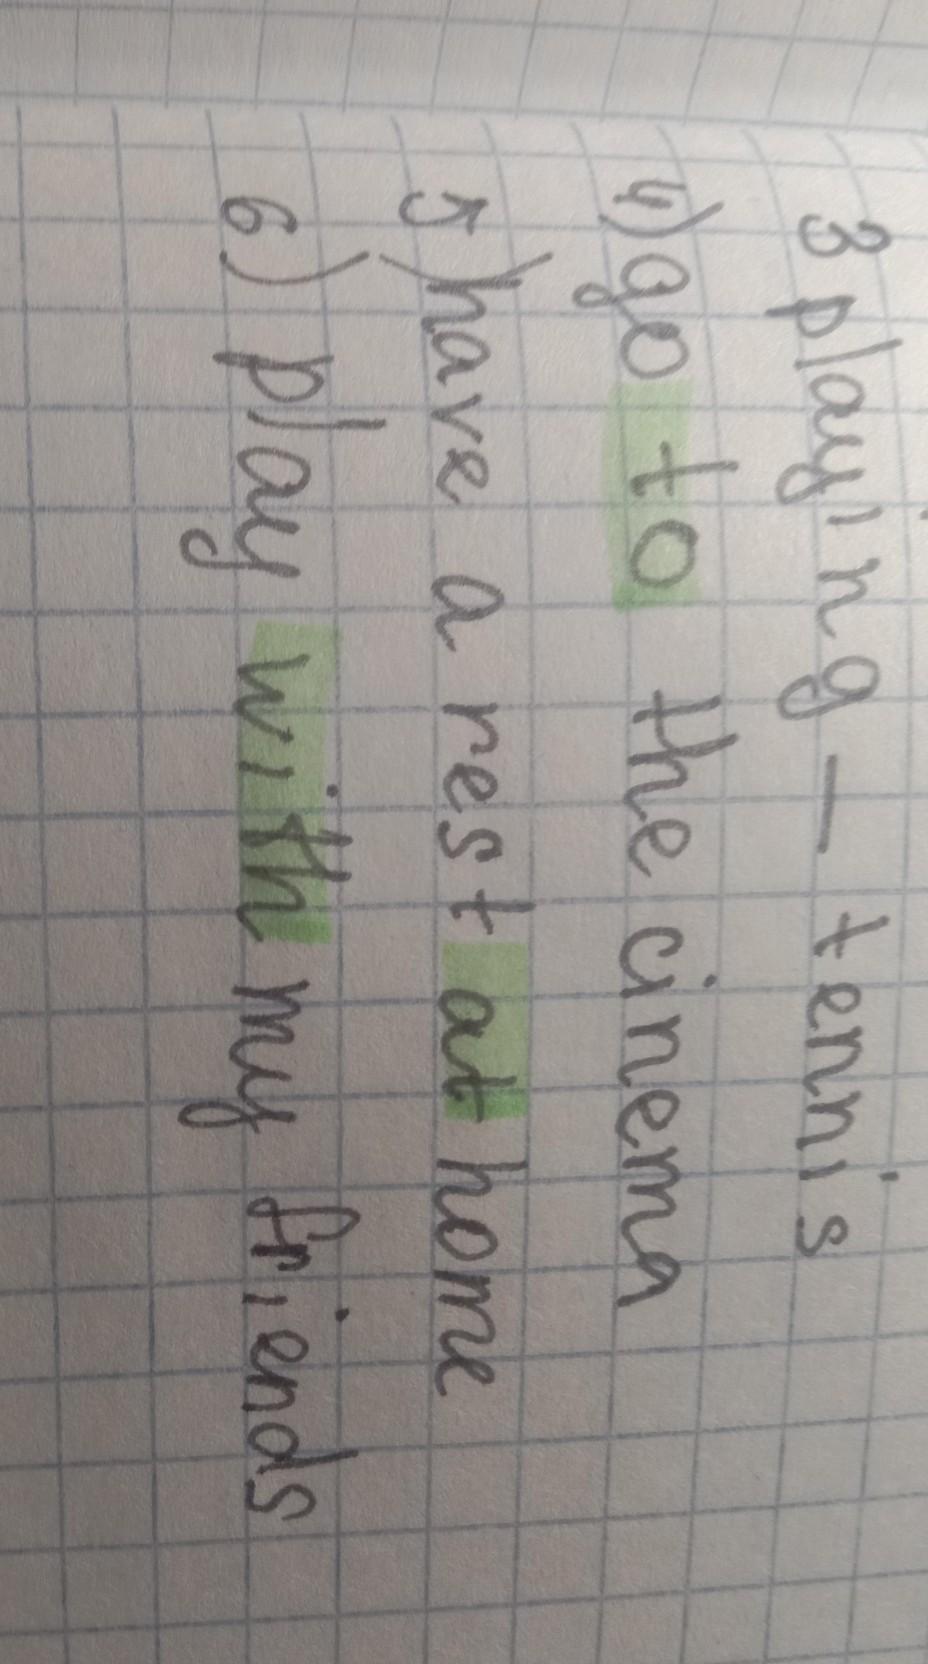 3 playing — tennis
4) go to the cinema
5) have a rest at home
6) play with my friends